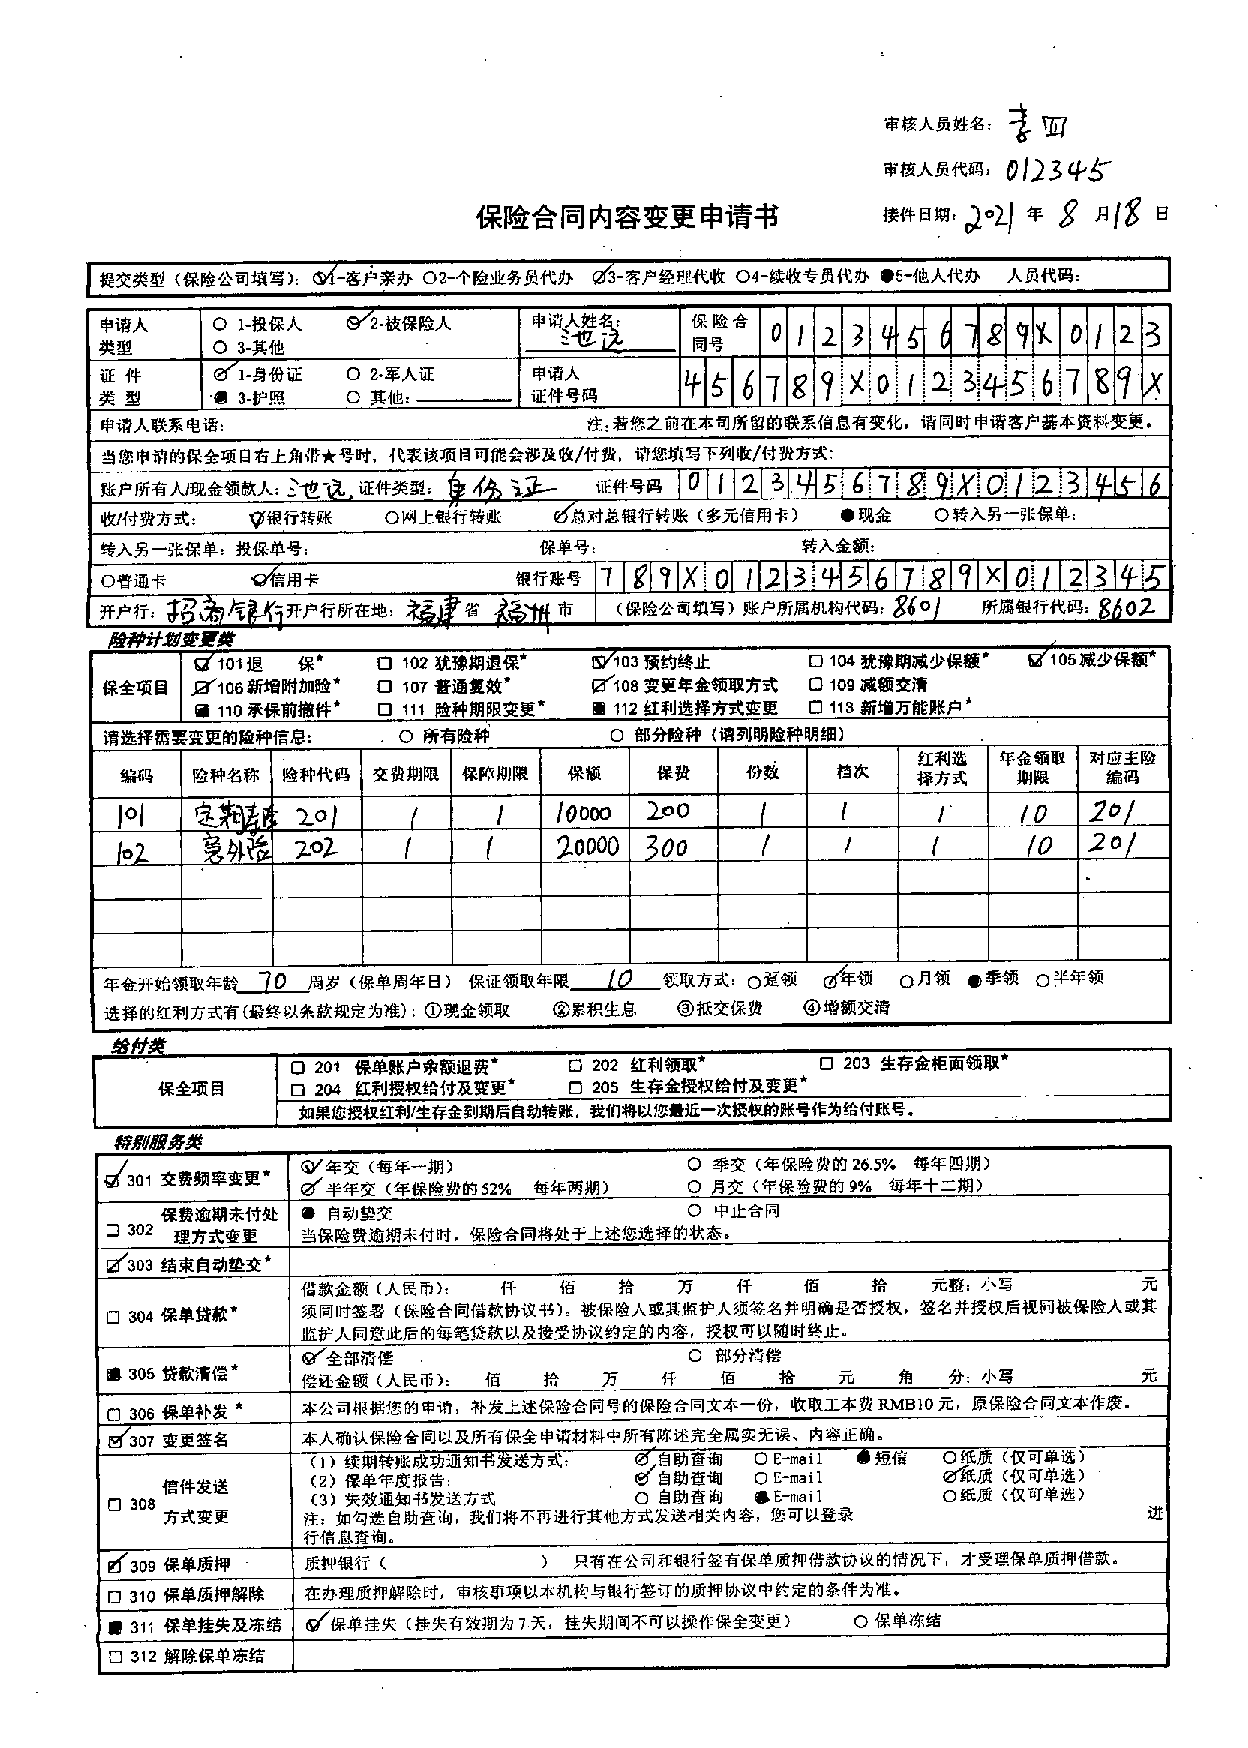 审核人员姓名：李四
审核人员代码：012345
保险合同内容变更申请书 接件日期：2021年8月18日
提交类型（保险公司填写）：☑1-客户亲办 ○2-个险业务员代办 ☑3-客户经理代收 ○4-续收专员代办 ●5-他人代办 人员代码：
申请人类型 ○ 1-投保人 ☑2-被保险人 ○ 3-其他 申请人姓名：池远 保险合同号 0123456789X0123
证件类型 ☑1-身份证 ○ 2-军人证 ■ 3-护照 ○ 其他： 申请人证件号码 456789X0123456789X
申请人联系电话： 注：若您之前在本司所留的联系信息有变化，请同时申请客户基本资料变更。
当您申请的保全项目右上角带★号时，代表该项目可能会涉及收/付费，请您填写下列收/付费方式：
账户所有人/现金领款人：池远 证件类型：身份证 证件号码 0123456789X0123456
收/付费方式： ☑银行转账 ○网上银行转账 ☑总对总银行转账（多元信用卡） ●现金 ○转入另一张保单：
转入另一张保单：投保单号： 保单号： 转入金额：
○普通卡 ☑信用卡 银行账号 789X0123456789X012345
开户行：招商银行 开户行所在地：福建省 福州市 （保险公司填写）账户所属机构代码：8601 所属银行代码：8602
险种计划变更类
保全项目
☑101退 保* □ 102 犹豫期退保* ☑103 预约终止 □ 104 犹豫期减少保额* ☑105减少保额*
☑106 新增附加险* □ 107 普通复效* ☑108 变更年金领取方式 □ 109 减额交清
■ 110 承保前撤件* □ 111 险种期限变更* ■ 112 红利选择方式变更 □ 113 新增万能账户*
请选择需要变更的险种信息： ○ 所有险种 ○ 部分险种（请列明险种明细）
编码 险种名称 险种代码 交费期限 保障期限 保额 保费 份数 档次 红利选择方式 年金领取期限 对应主险编码
101 定期寿险 201 1 1 10000 200 1 1 1 10 201
102 意外险 202 1 1 20000 300 1 1 1 10 201
年金开始领取年龄 70 周岁（保单周年日） 保证领取年限 10 领取方式：○趸领 ☑年领 ○月领 ●季领 ○半年领
选择的红利方式有(最终以条款规定为准)：①现金领取 ②累积生息 ③抵交保费 ④增额交清
给付类
保全项目
□ 201 保单账户余额退费* □ 202 红利领取* □ 203 生存金柜面领取*
□ 204 红利授权给付及变更* □ 205 生存金授权给付及变更*
如果您授权红利/生存金到期后自动转账，我们将以您最近一次授权的账号作为给付账号。
特别服务类
☑301 交费频率变更* ☑年交（每年一期） ○ 季交（年保险费的26.5% 每年四期）
☑半年交（年保险费的52% 每年两期） ○ 月交（年保险费的9% 每年十二期）
□ 302 保费逾期未付处理方式变更 ● 自动垫交 ○ 中止合同
当保险费逾期未付时，保险合同将处于上述您选择的状态。
☑303 结束自动垫交*
□ 304 保单贷款* 借款金额（人民币）： 仟 佰 拾 万 仟 佰 拾 元整；小写 元
须同时签署（保险合同借款协议书）。被保险人或其监护人须签名并明确是否授权，签名并授权后视同被保险人或其
监护人同意此后的每笔贷款以及接受协议约定的内容，授权可以随时终止。
■ 305 贷款清偿* ☑全部清偿 ○ 部分清偿
偿还金额（人民币）： 佰 拾 万 仟 佰 拾 元 角 分；小写 元
□ 306 保单补发 * 本公司根据您的申请，补发上述保险合同号的保险合同文本一份，收取工本费RMB10元，原保险合同文本作废。
☑307 变更签名 本人确认保险合同以及所有保全申请材料中所有陈述完全属实无误、内容正确。
□ 308 信件发送方式变更 （1）续期转账成功通知书发送方式： ☑自助查询 ○E-mail ●短信 ○纸质（仅可单选）
（2）保单年度报告： ☑自助查询 ○E-mail ☑纸质（仅可单选）
（3）失效通知书发送方式 ○ 自助查询 ●E-mail ○纸质（仅可单选）
注：如勾选自助查询，我们将不再进行其他方式发送相关内容，您可以登录 进
行信息查询。
☑309 保单质押 质押银行（ ） 只有在公司和银行签有保单质押借款协议的情况下，才受理保单质押借款。
□ 310 保单质押解除 在办理质押解除时，审核事项以本机构与银行签订的质押协议中约定的条件为准。
■ 311 保单挂失及冻结 ☑保单挂失（挂失有效期为7天，挂失期间不可以操作保全变更） ○ 保单冻结
□ 312 解除保单冻结